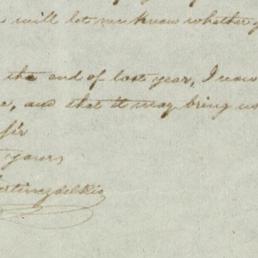 will let me know whether
the end of last year, I now
and that it may bring us
Sir
yours